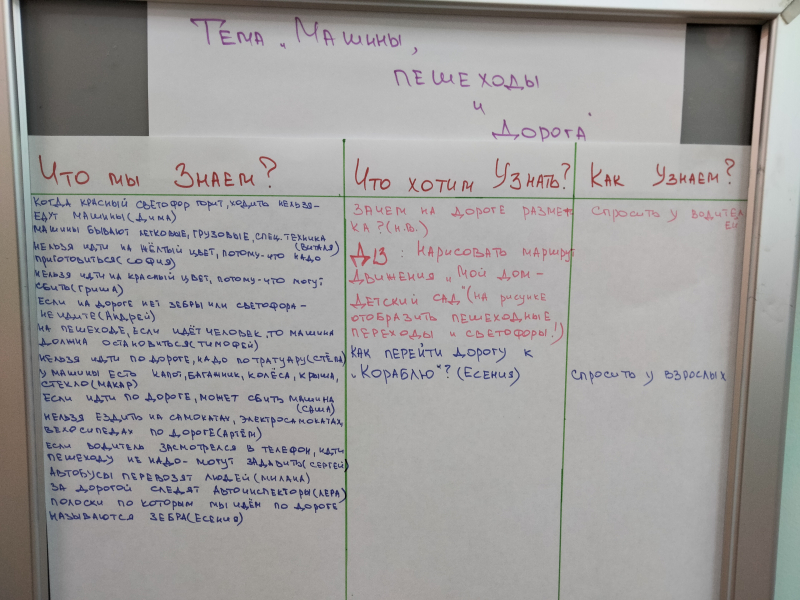 Тема „Машины,
пешеходы
и
дорога"
Что мы знаем?
Когда красный светофор горит, ходить нельзя-
едут машины (Дима)
Машины бывают легковые, грузовые, спец. техника
(Виталя)
Нельзя идти на жёлтый цвет, потому-что надо
приготовиться (София)
Нельзя идти на красный цвет, потому-что могут
сбить (Гриша)
Если на дороге нет зебры или светофора-
не идите (Андрей)
На пешеходе, если идёт человек, то машина
должна остановиться (Тимофей)
Нельзя идти по дороге, надо по тратуару (Стёпа)
У машины есть капот, багажник, колёса, крыша,
стекло (Макар)
Если идти по дороге, может сбить машина
(Саша)
Нельзя ездить на самокатах, электросамокатах,
велосипедах по дороге (Артём)
Если водитель засмотрелся в телефон, идти
пешеходу не надо- могут задавить (Сергей)
Автобусы перевозят людей (Милана)
За дорогой следят автоинспекторы (Лера)
Полоски по которым мы идём по дороге
называются зебра (Есения)
Что хотим узнать?
Зачем на дороге размет-
ка? (Н.В.)
ДЗ: Нарисовать маршрут
движения „Мой дом-
детский сад" (на рисунке
отобразить пешеходные
переходы и светофоры!)
Как перейти дорогу к
„Кораблю"? (Есения)
Как узнаем?
Спросить у водител
ей
Спросить у взрослых